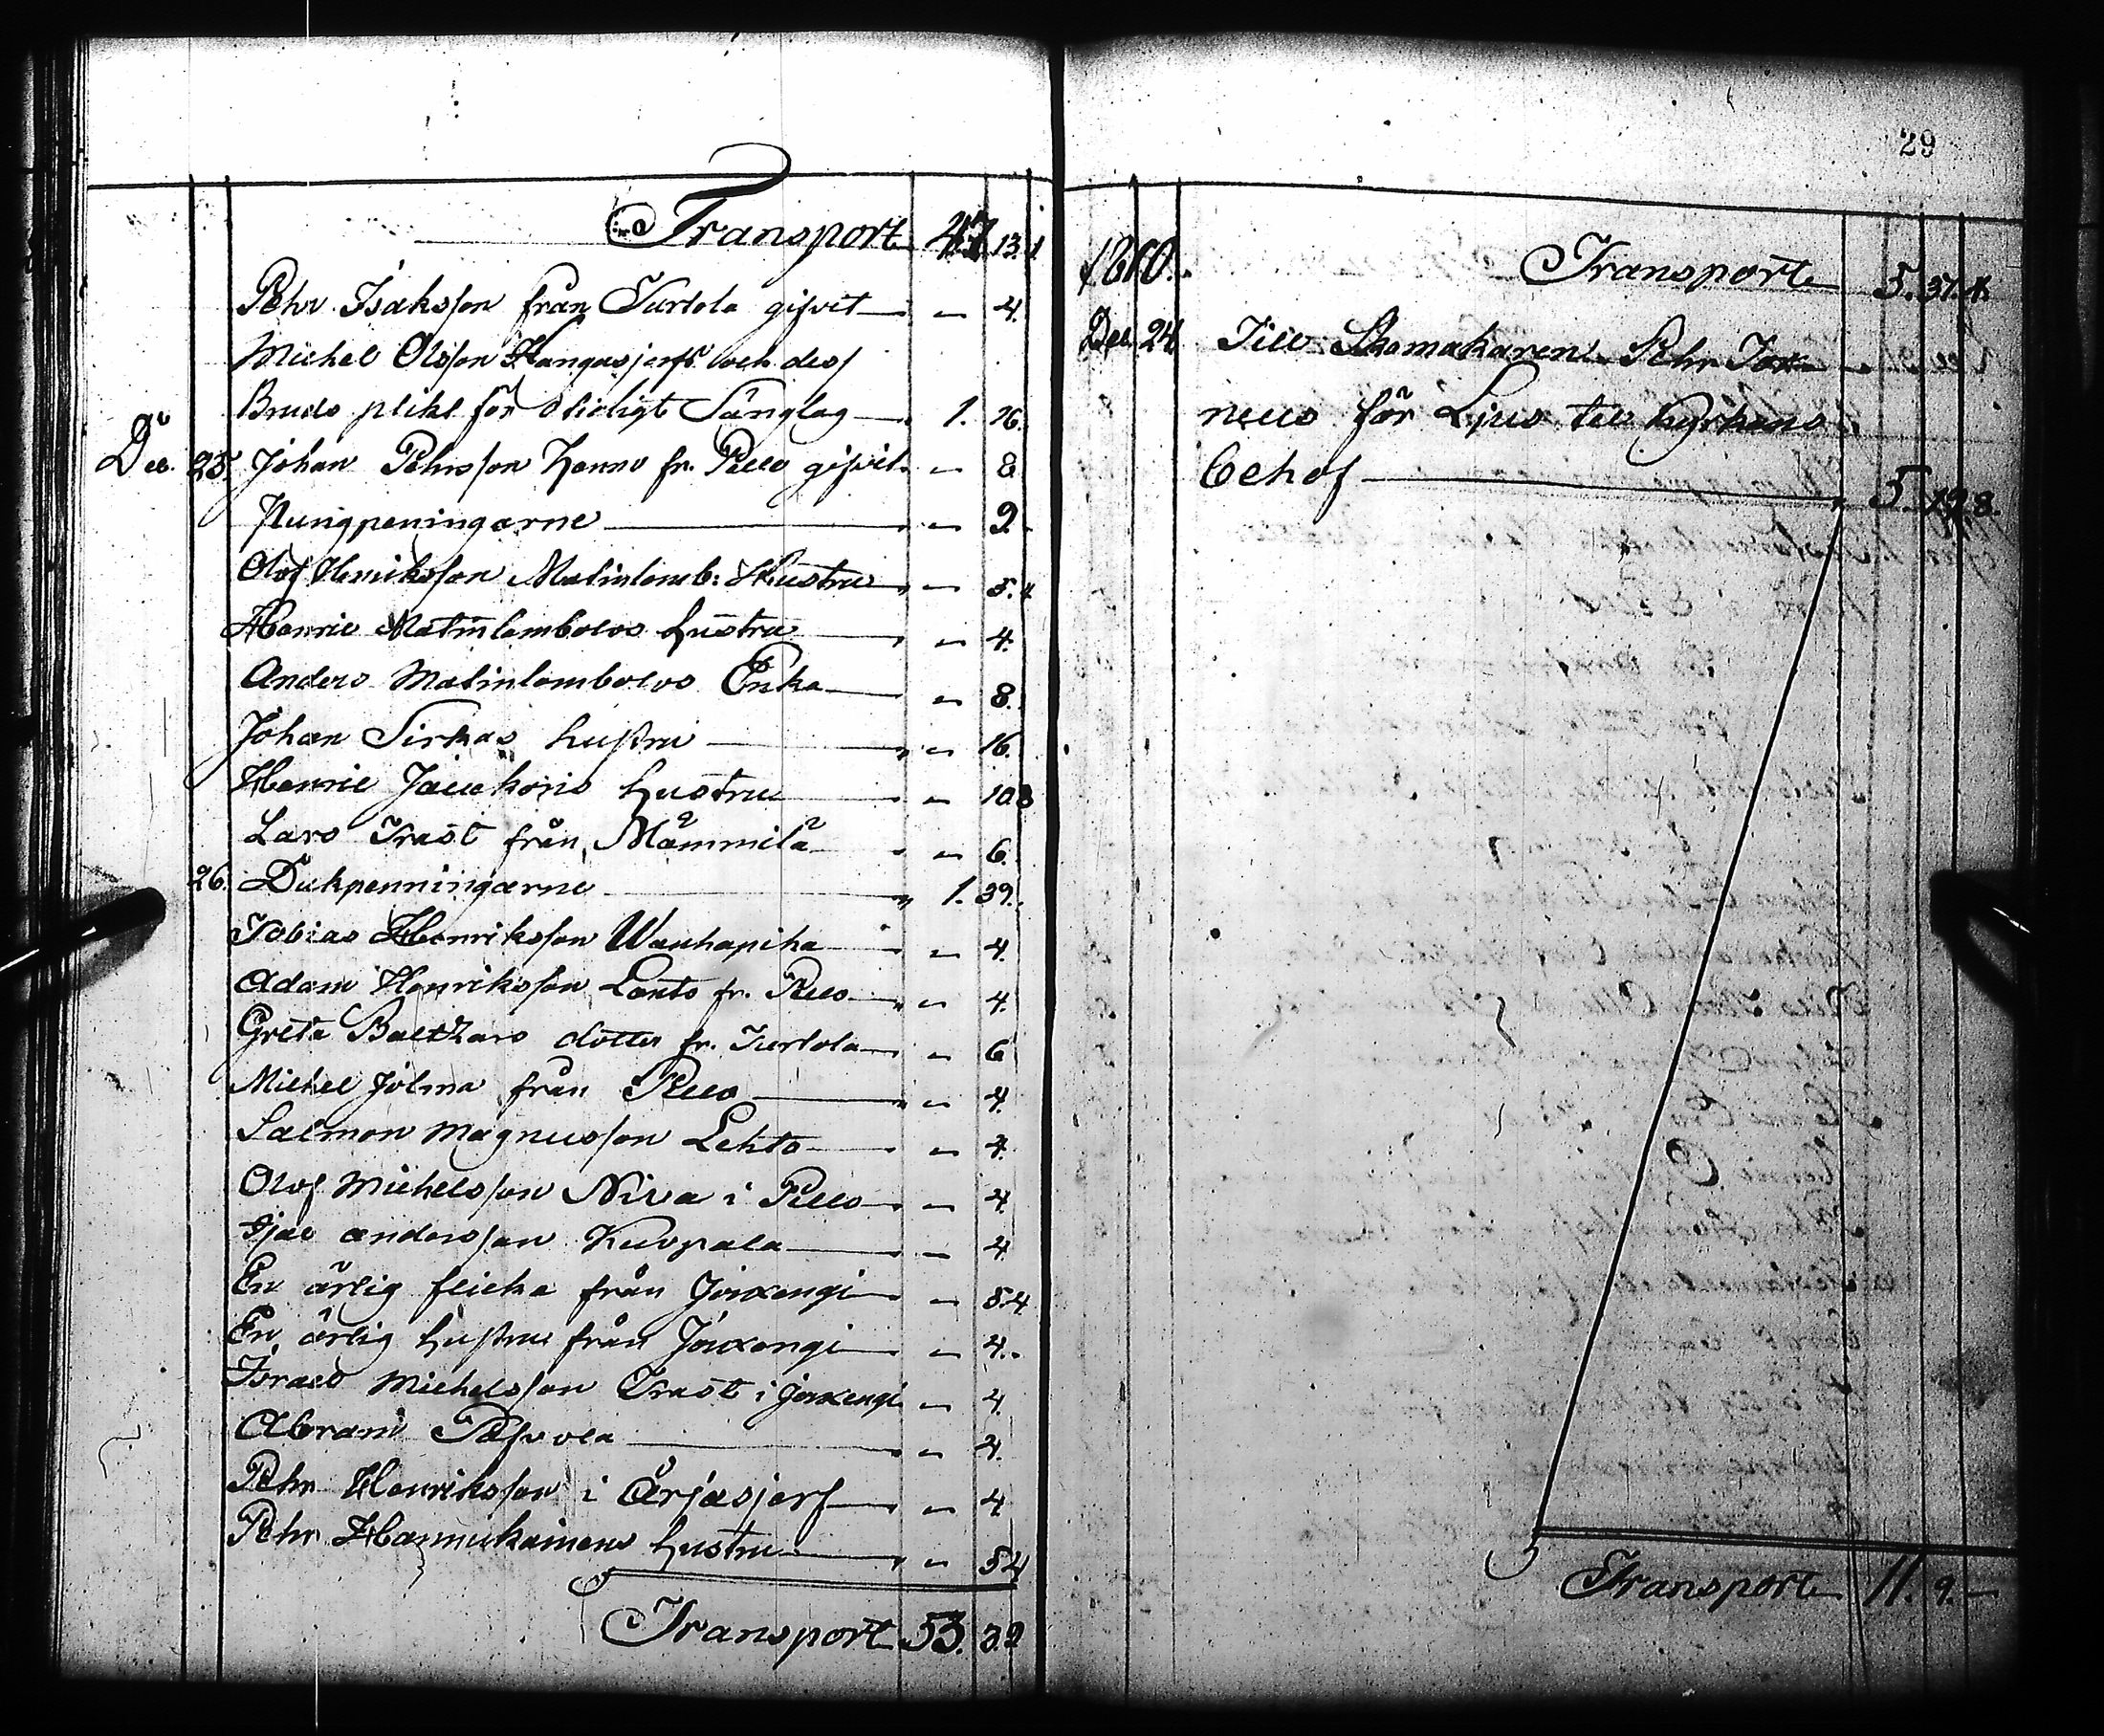 Transport 47. 13. 1.
Pehr Isaksson från Turtola gifvit — 4.
Michel Olsson Kangasjerfs och dess
Bruds plikt för otidigt Sänglag 1. 16.
Dec. 25. Johan Pehrsson fr. Pello gifvit — 8
Pungpeningarne — 9
Olof Henriksson Matinlomb: Hustru — 5. 4
Henric Matinlombolos hustru — 4.
Anders Matinlombolos Enka — 8.
Johan Sirkas hustru — 16.
Henric hustru — 10 8
Lars Trast från Mämmilä — 6.
26. Dukpenningarne 1. 39.
Tobias Henriksson Wanhapiha — 4.
Adam Henriksson Lanto fr. Pello — 4.
Greta Balthzars dotter fr. Turtola — 6
Michel Jolma från Pello — 4.
Salmon Magnusson Lehto — 4.
Olof Michelsson Niva i Pello — 4.
andersson Kuppala — 4.
En ärlig flicka från Joxengi — 5. 4
En ärlig hustru från Joxengi — 4.
Israel Michelsson Trast i Joxengi — 4.
Abram — 4.
Pehr Henriksson i Ärjäsjerf — 4
Pehr Hannukainens hustru — 5 4
Transport 53. 39
29
1680. Transport 5. 37. 4.
Dec. 24 Till Skomakaren Pehr
för Ljus till kyrkans
behof 5. 19. 8.
Transport 11. 9. —